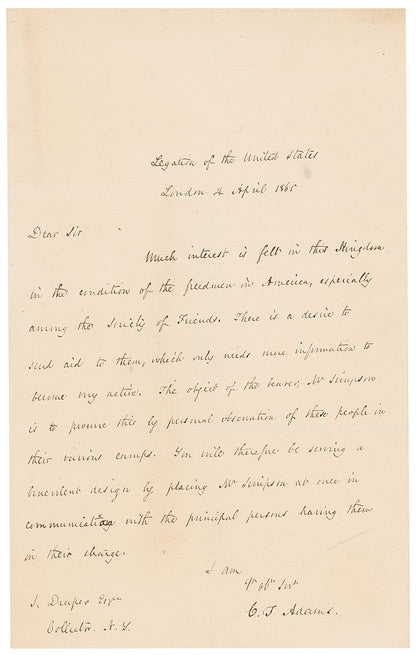 Legation of the United States
London 4 April 1865
Dear Sir
Much interest is felt in this Kingdom
in the condition of the freedmen in America, especially
among the Society of Friends. There is a desire to
send aid to them, which only needs more information to
become very active. The object of the bearer, Mr Simpson
is to procure this by personal observation of these people in
their various camps. You will therefore be serving a
benevolent design by placing Mr Simpson at once in
communication with the principal persons having them
in their charge.
I am
Yr obt Servt
C. F. Adams.
S. Draper Esqre
Collector. N. Y.